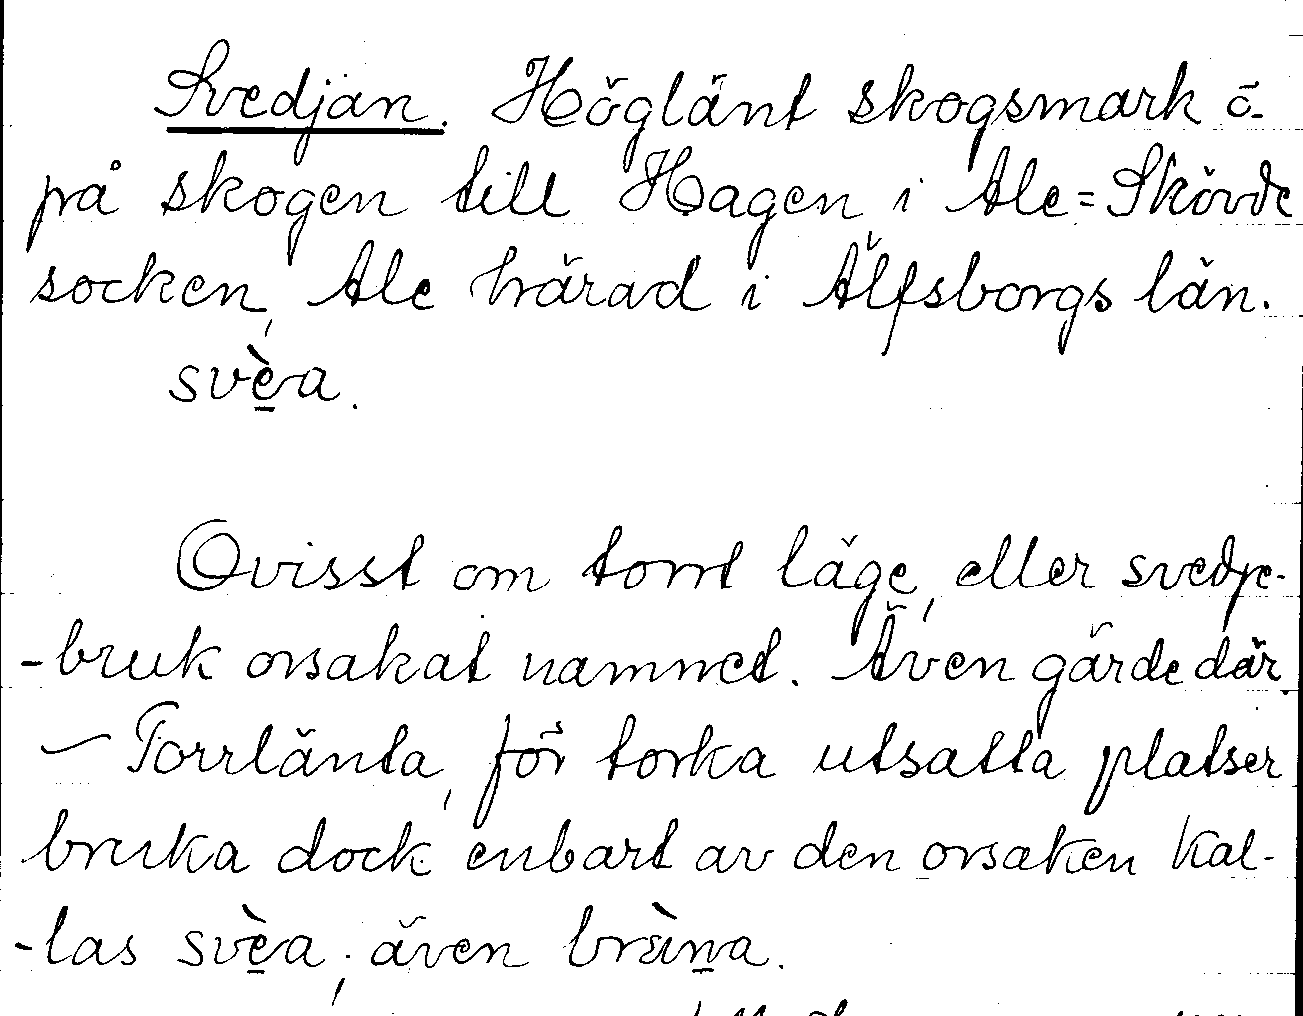 Svedjan. Höglänt skogsmark ö.
på skogen till Hagen i Ale=Skövde
socken, Ale härad i Älfsborgs län.
svèa.
Ovisst om torrt läge, eller svedje-
-bruk orsakat namnet. Även gärde där.
— Torrlänta, för torka utsatta platser
bruka dock enbart av den orsaken kal-
-las svèa; även bräna.